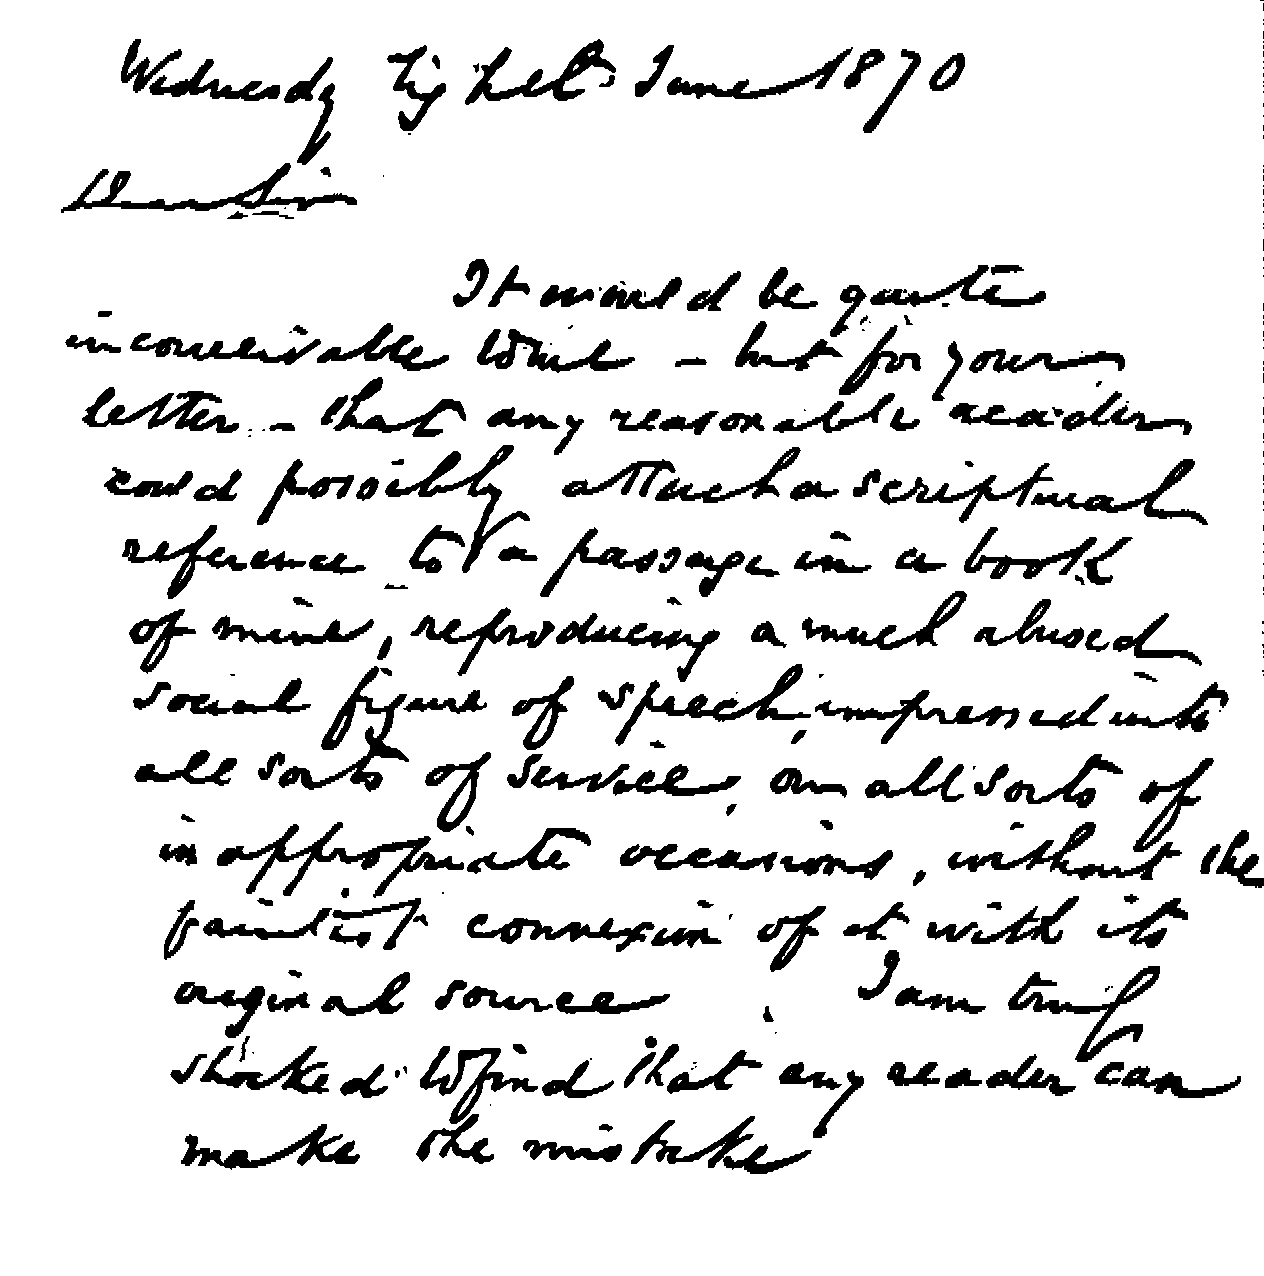 Wednesday Eighth June 1870
Dear Sir
It would be quite
inconceivable to me — but for your
letter — that any reasonable reader
could possibly attach a scriptural
reference to a passage in a book
of mine, reproducing a much abused
social figure of speech, impressed into
all sorts of service, on all sorts of
inappropriate occasions, without the
faintest connexion of it with its
original source. I am truly
shocked to find that any reader can
make the mistake